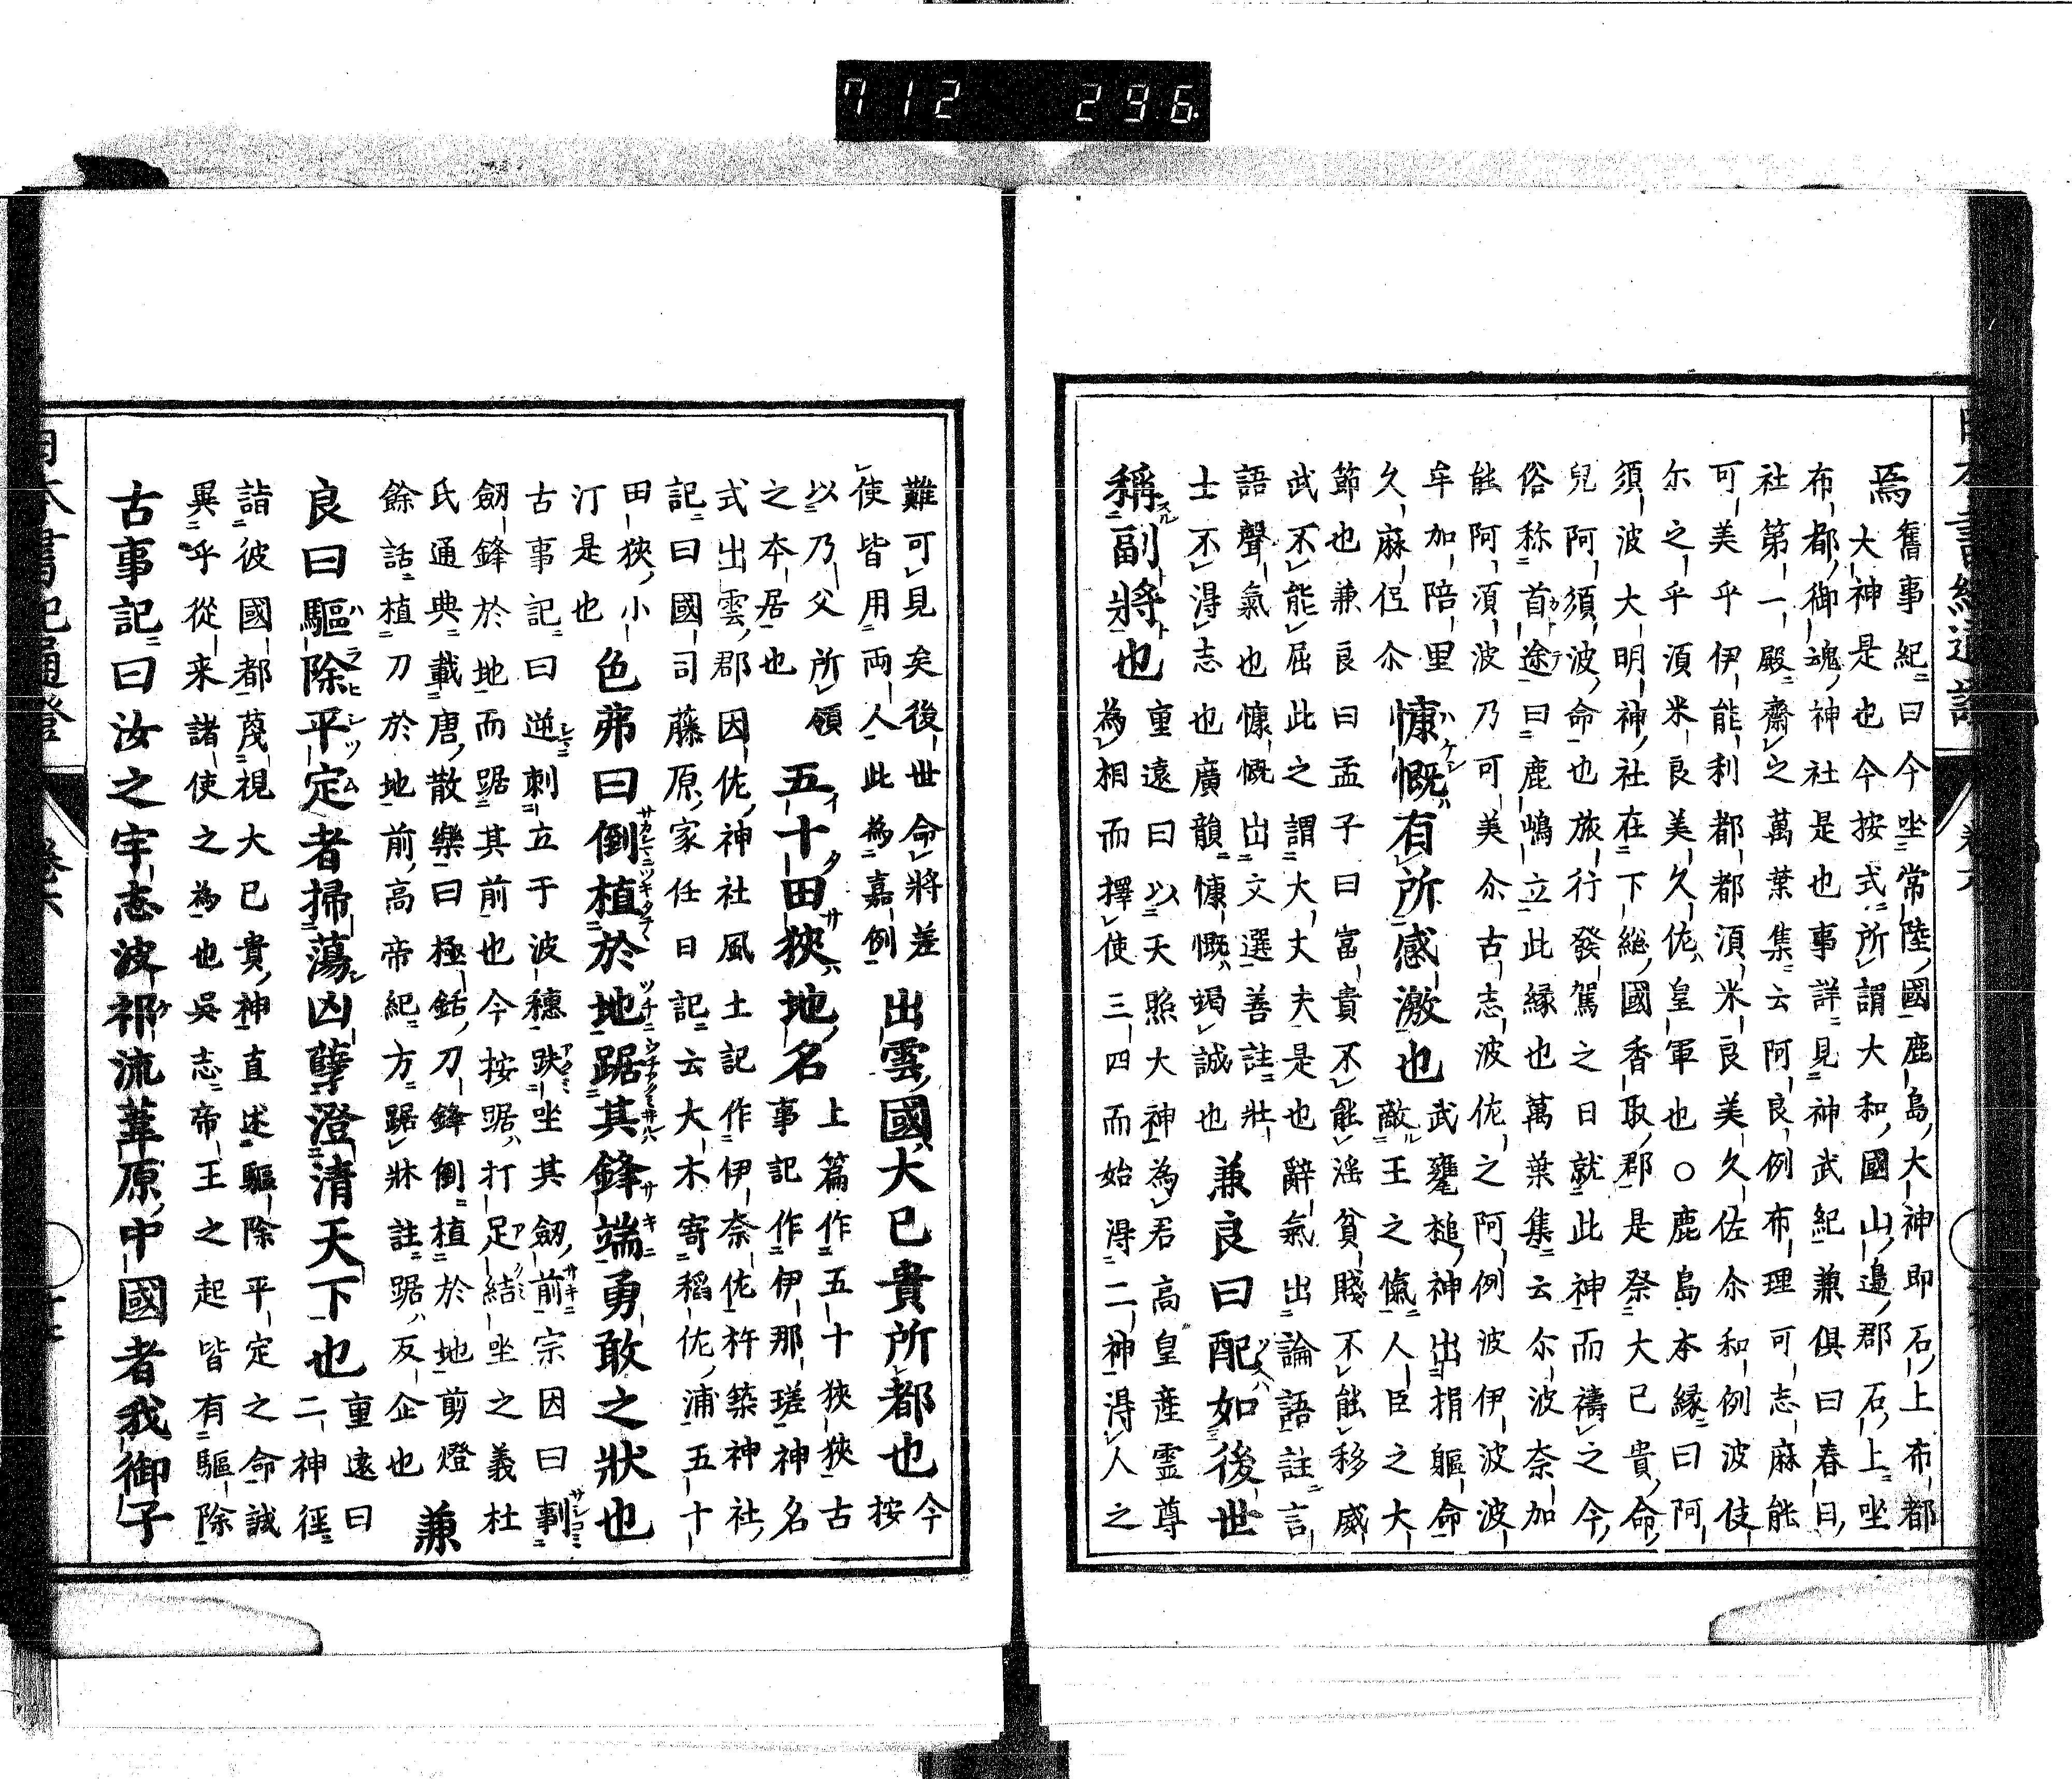 712 296
焉
舊事紀曰今坐常陸國鹿島大神即石上布都
大神是也今按式所謂大和國山邊郡石上坐
布都御魂神社是也事詳見神武紀兼俱曰春日
社第一殿齋之萬葉集云阿良例布理可志麻能
可美乎伊能利都都須米良美久佐尒和例波伎
尓之乎須米良美久佐皇軍也○鹿島本緣曰阿
須波大明神社在下総國香取郡是祭大己貴命
兒阿須波命也旅行發駕之日就此神而禱之今
俗称首途曰鹿嶋立此緣也萬葉集云尓波奈加
能阿須波乃可美尒古志波佐之阿例波伊波波
牟加陪里
久麻侄尒
慷慨有所感激也
武甕槌神出捐軀命
敵王之愾人臣之大
節也兼良曰孟子曰富貴不能滛貧賤不能移威
武不能屈此之謂大丈夫是也辭氣出論語註言
語聲氣也慷慨出文選善註壯
士不得志也廣韻慷慨竭誠也
兼良曰配如後世
稱副將也
重遠曰以天照大神為君高皇產霊尊
為相而擇使三四而始得二神得人之
難可見矣後世命將差
使皆用両人此為嘉例
出雲國大已貴所都也
今
按
以乃父所領
之本居也
五十田狹地名
上篇作五十狹狹古
事記作伊那瑳神名
式出雲郡因佐神社風土記作伊奈佐杵築神社
記曰國司藤原家任日記云大木寄稻佐浦五十
田狹小
汀是也
色弗曰倒植於地踞其鋒端勇敢之狀也
古事記曰逆刺立于波穗趺坐其劒前宗因曰剚
劒鋒於地而踞其前也今按踞打足結坐之義杜
氏通典載唐散樂曰極銛刀鋒倒植於地剪燈
餘話植刀於地前高帝紀方踞牀註踞反企也
兼
良曰驅除平定者掃蕩凶孽澄清天下也
重遠曰
二神徑
詣彼國都蔑視大已貴神直述驅除平定之命誠
異乎從来諸使之為也吳志帝王之起皆有驅除
古事記曰汝之宇志波祁流葦原中國者我御子